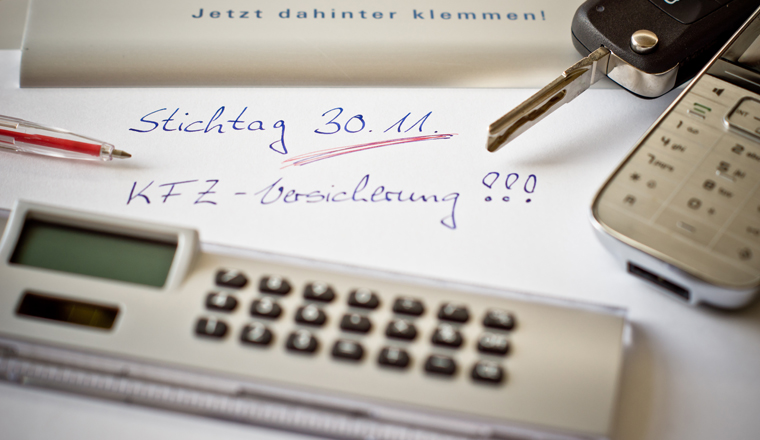 Jetzt dahinter klemmen!
Stichtag 30.11.
KFZ-Versicherung !!!